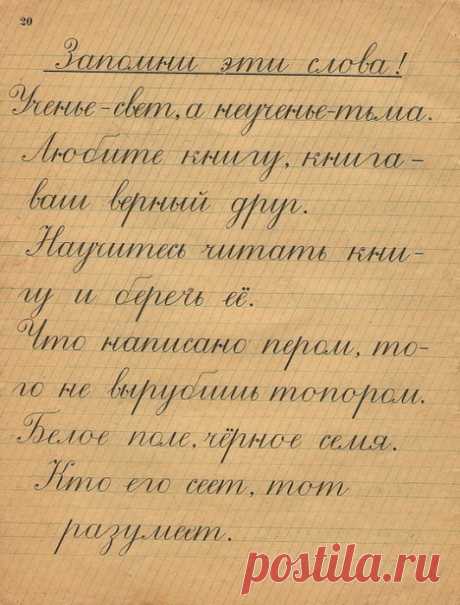 20
Запомни эти слова!
Ученье-свет, а неученье-тьма.
Любите книгу, книга-
ваш верный друг.
Научитесь читать кни-
гу и беречь её.
Что написано пером, то-
го не вырубишь топором.
Белое поле, чёрное семя.
Кто его сеет, тот
разумеет.
postila.ru